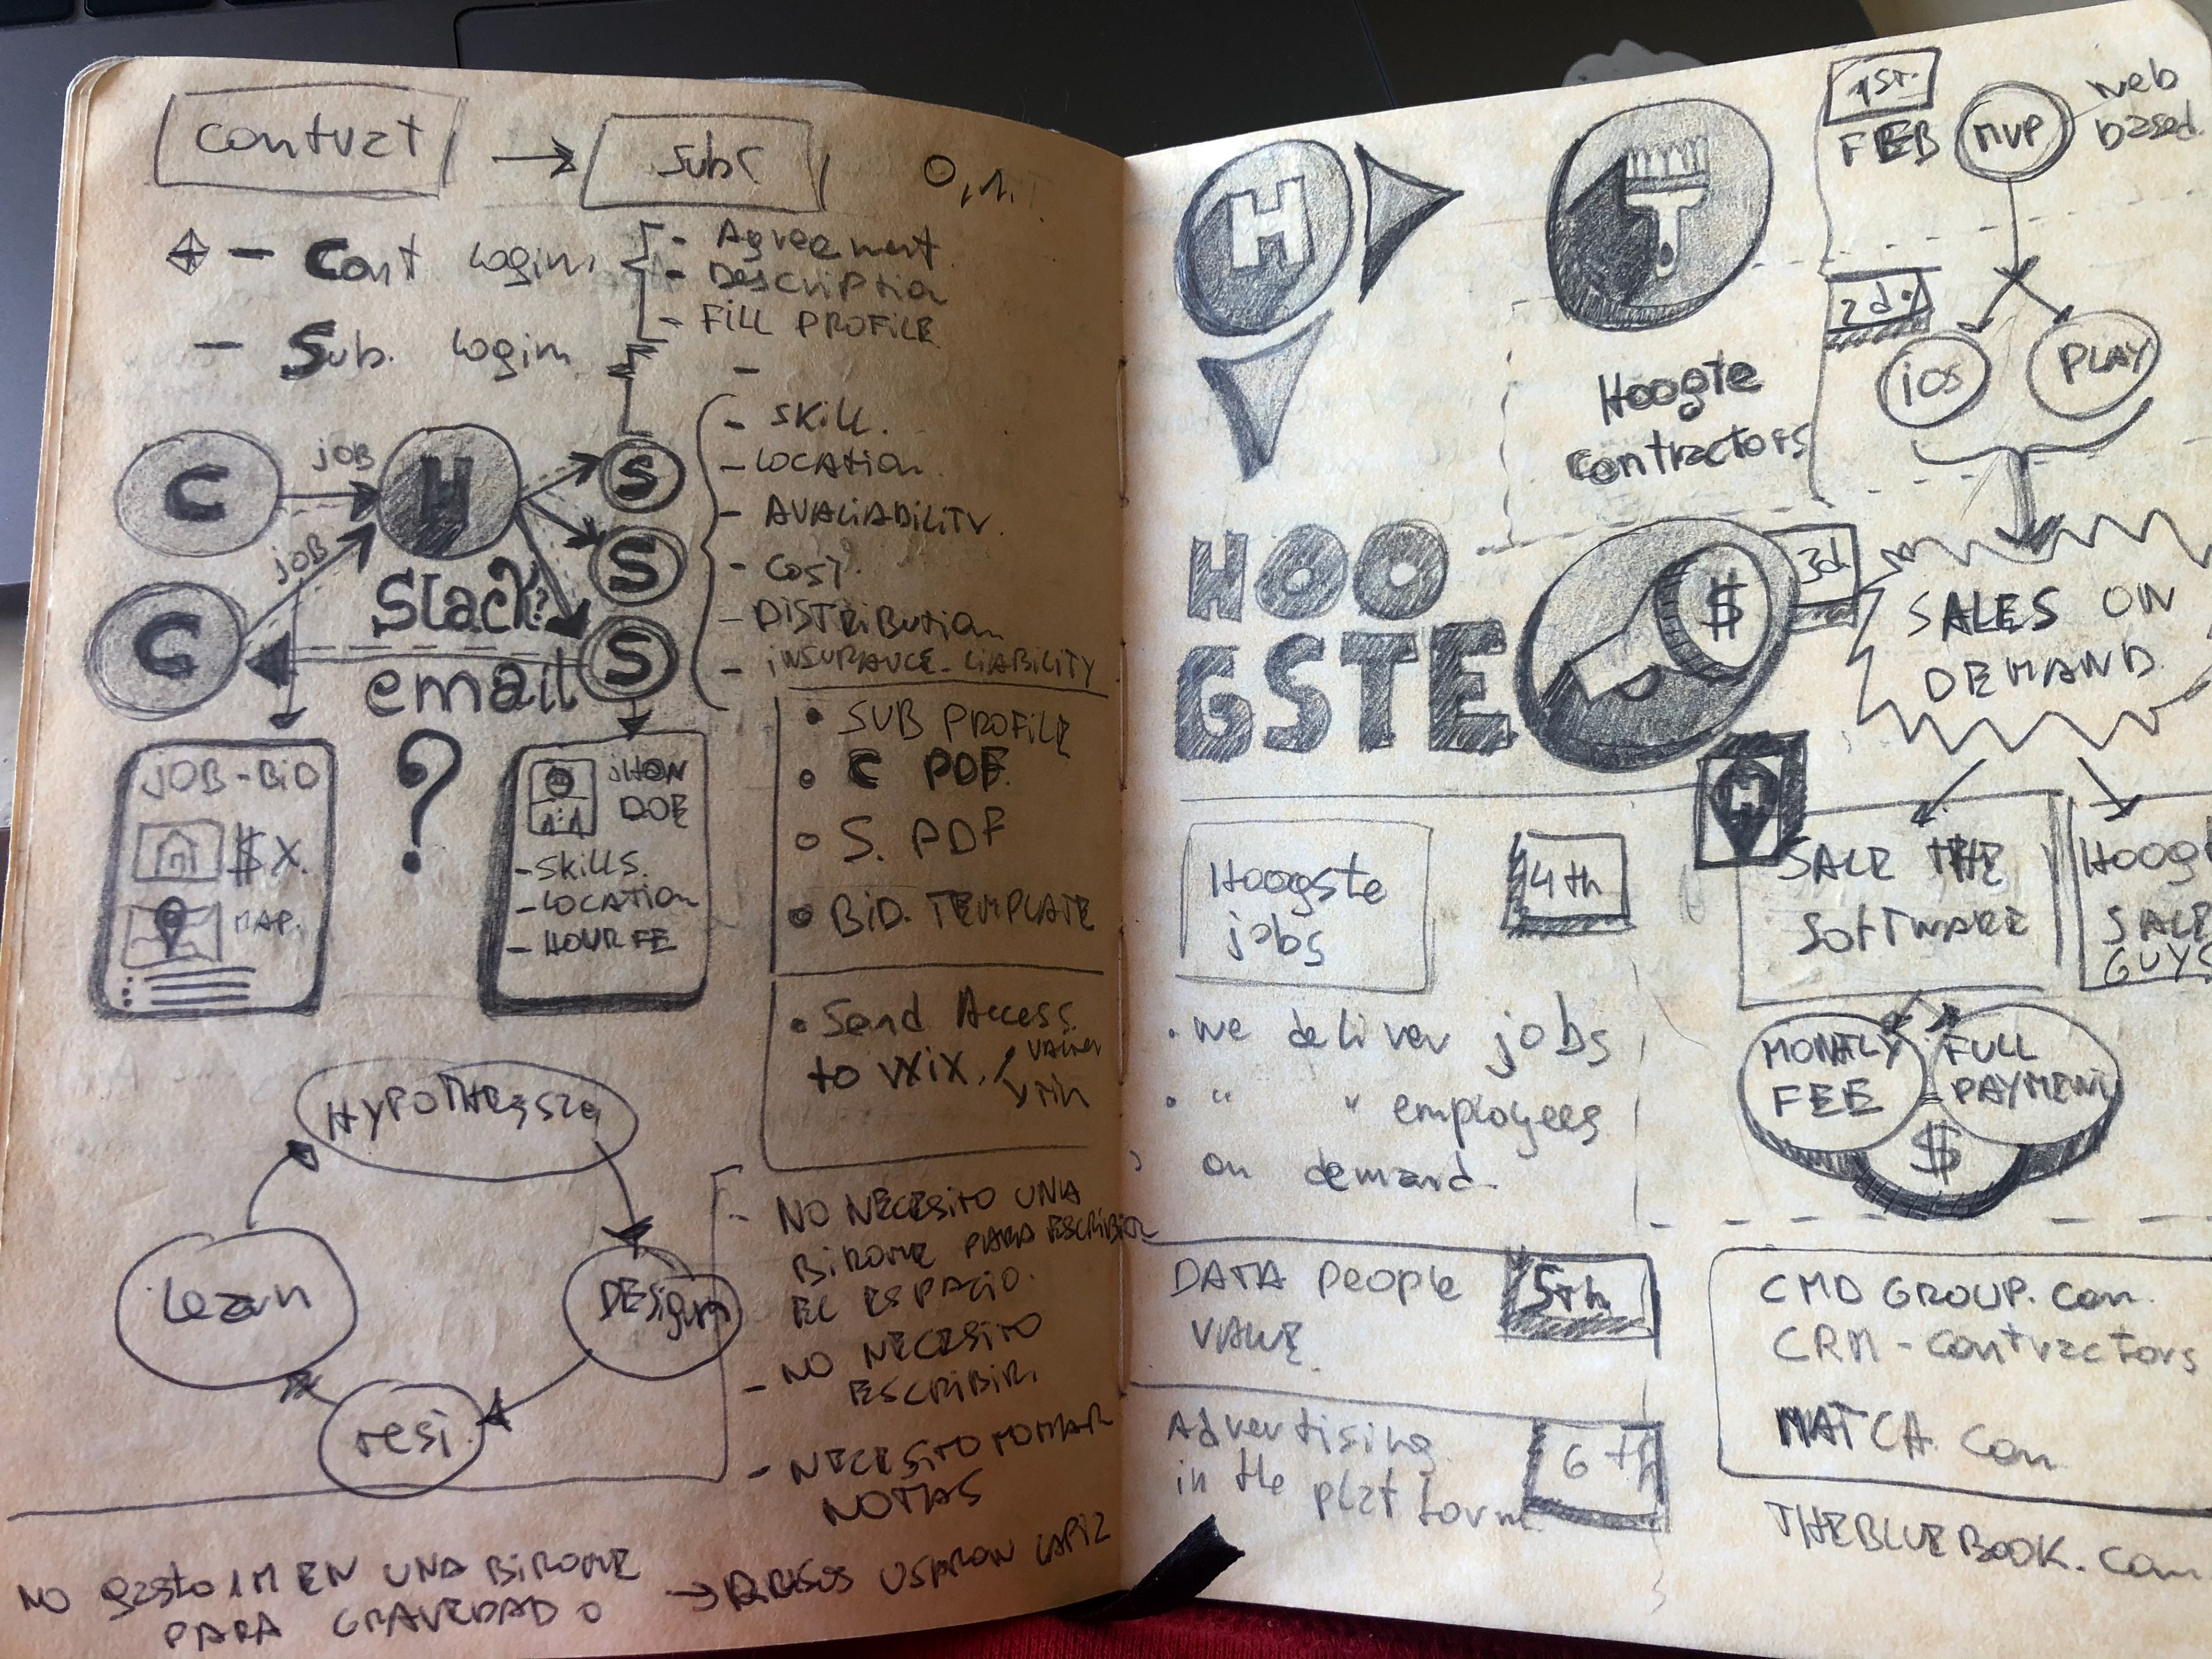 contract
Subs
0,1.
- Cont login
- Agreement
- Description
- FILL PROFILE
- Sub. login
-
- SKILL.
- LOCATION
- AVALIABILITY.
- COST.
- DISTRIBUTION
- INSURANCE-LIABILITY
C
job
H
S
job
S
C
Slack?
S
email
JOB-BID
$ X.
MAP.
?
JHON
DOE
- SKILLS.
- LOCATION
- HOUR FE
• SUB PROFILE
• C PDF.
○ S. PDF
• BID. TEMPLATE
• Send Access
to WIX.
Learn
DESIGN
test
- NO NECESITO UNA
BIROME PARA ESCRIBIR
EL ESPACIO.
- NO NECESITO
ESCRIBIR.
- NECESITO TOMAR
NOTAS
NO gasto 1M EN UNA BIROME
PARA GRAVEDAD 0
→ RUSOS USARON LAPIZ
H
Hoogte
contractors
1st.
FEB
MVP
web
based.
2d.
iOS
PLAY
HOO
GSTE
$
3d
SALES ON
DEMAND
H
SALE THE
SOFTWARE
HOOG
SALE
GUYS
MONTLY
FEE
FULL
PAYMENT
$
Hoogste
jobs
4th
• we deliver jobs
• " " employees
on demand.
DATA People
VALUE.
5th
Advertising
in the platform
6th
CMD GROUP. com.
CRM - contractors
MATCH. com
THEBLUEBOOK. com